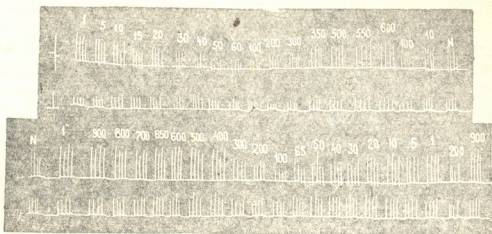 1 5 10 15 20 30 40 50 60 100 200 300 350 500 550 600 10 N
N 1 900 800 700 650 600 500 400 300 200 100 65 50 40 30 20 10 5 1 200 900